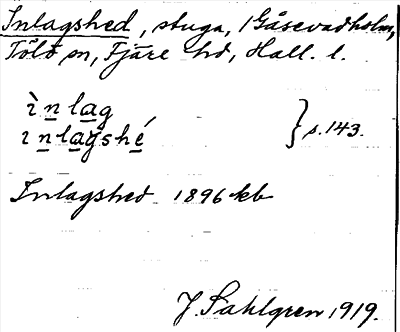 Inlagshed, stuga, /Gåsevadholm,
Tölö sn, Fjäre hd, Hall. l.
ìnlag
ınlagshé } s. 143.
Inlagshed 1896 kb
J. Sahlgren 1919.